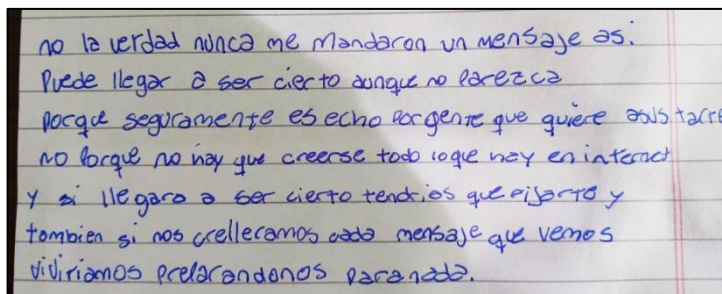 no la verdad nunca me mandaron un mensaje asi.
Puede llegar a ser cierto aunque no parezca
porque seguramente es echo por gente que quiere asustarte
no porque no hay que creerse todo lo que hay en internet
y si llegara a ser cierto tendrias que fijarte y
tambien si nos crelleramos cada mensaje que vemos
viviriamos preparandonos para nada.